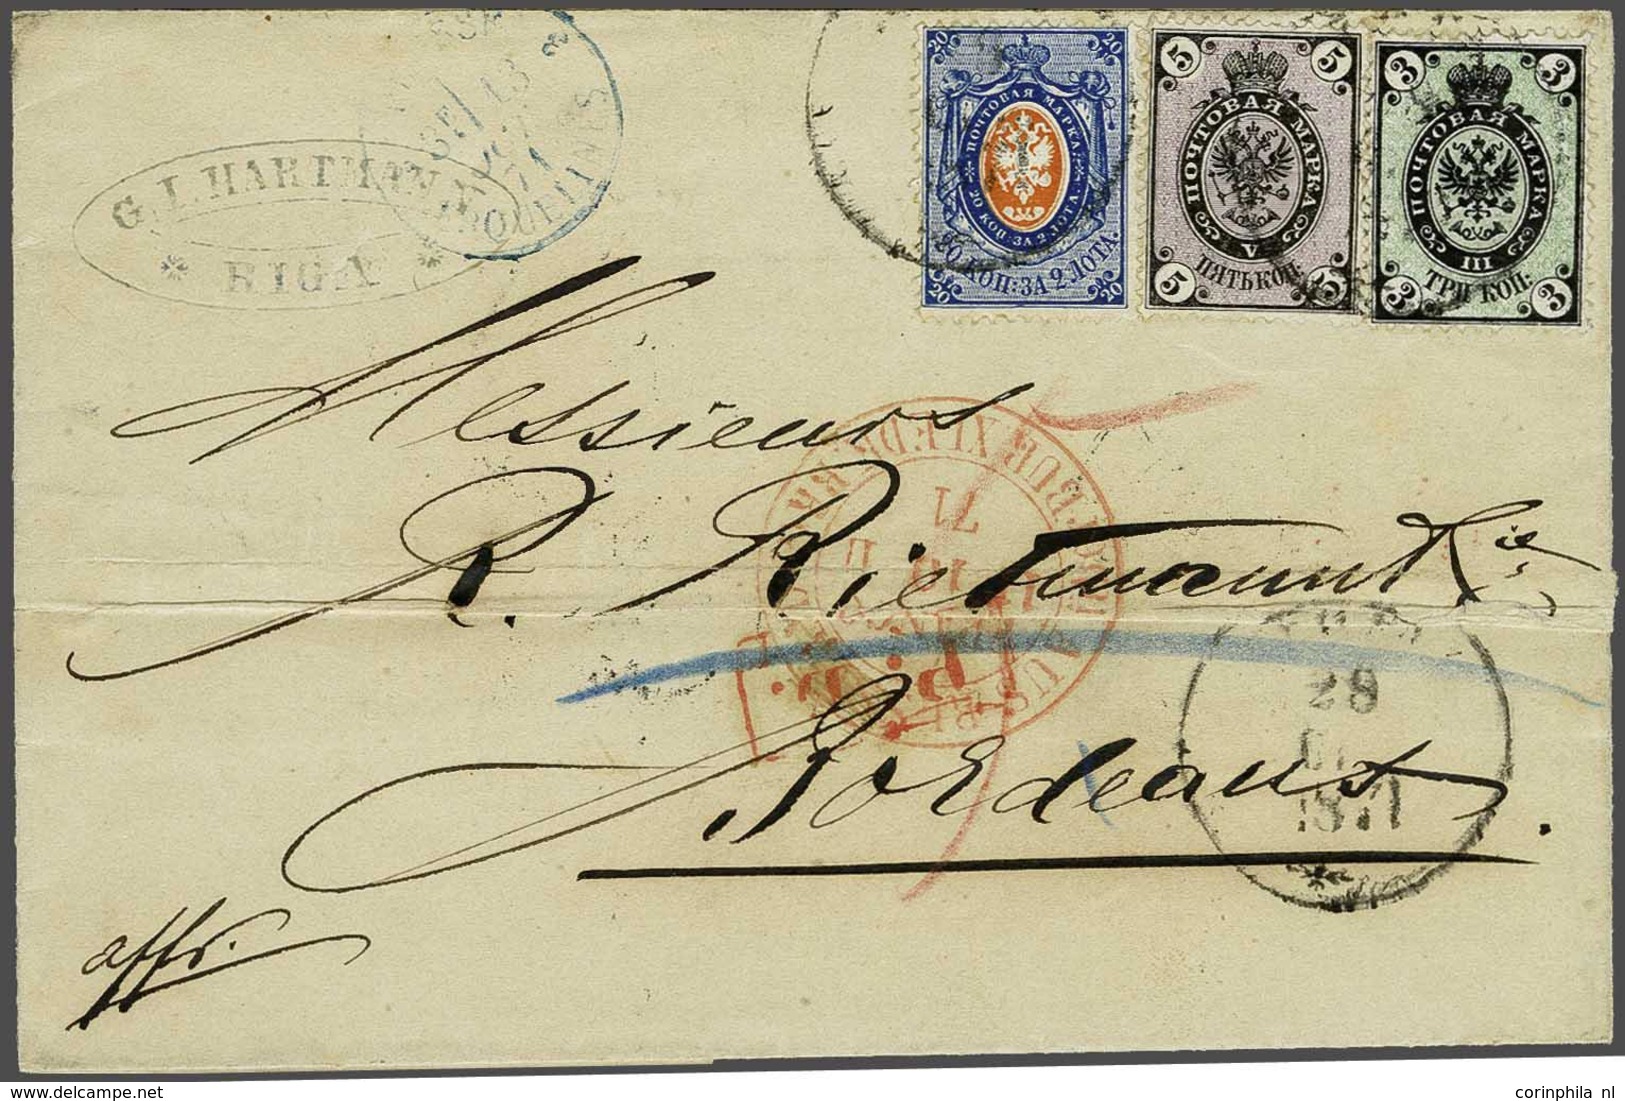 G. L. HARTMANN
* RIGA *
ERQUELINES
71
20 20
ПОЧТОВАЯ МАРКА
20 КОП: ЗА 2 ЛОТА
20 КОП: ЗА 2 ЛОТА.
20 20
5 5
ПОЧТОВАЯ МАРКА
V
ПЯТЬ КОП:
5 5
3 3
ПОЧТОВАЯ МАРКА
III
ТРИ КОП:
3 3
Messieurs
R. Rietmann & Cie
71
P. D.
Bordeaux.
28
1871
affr.
corinphila nl